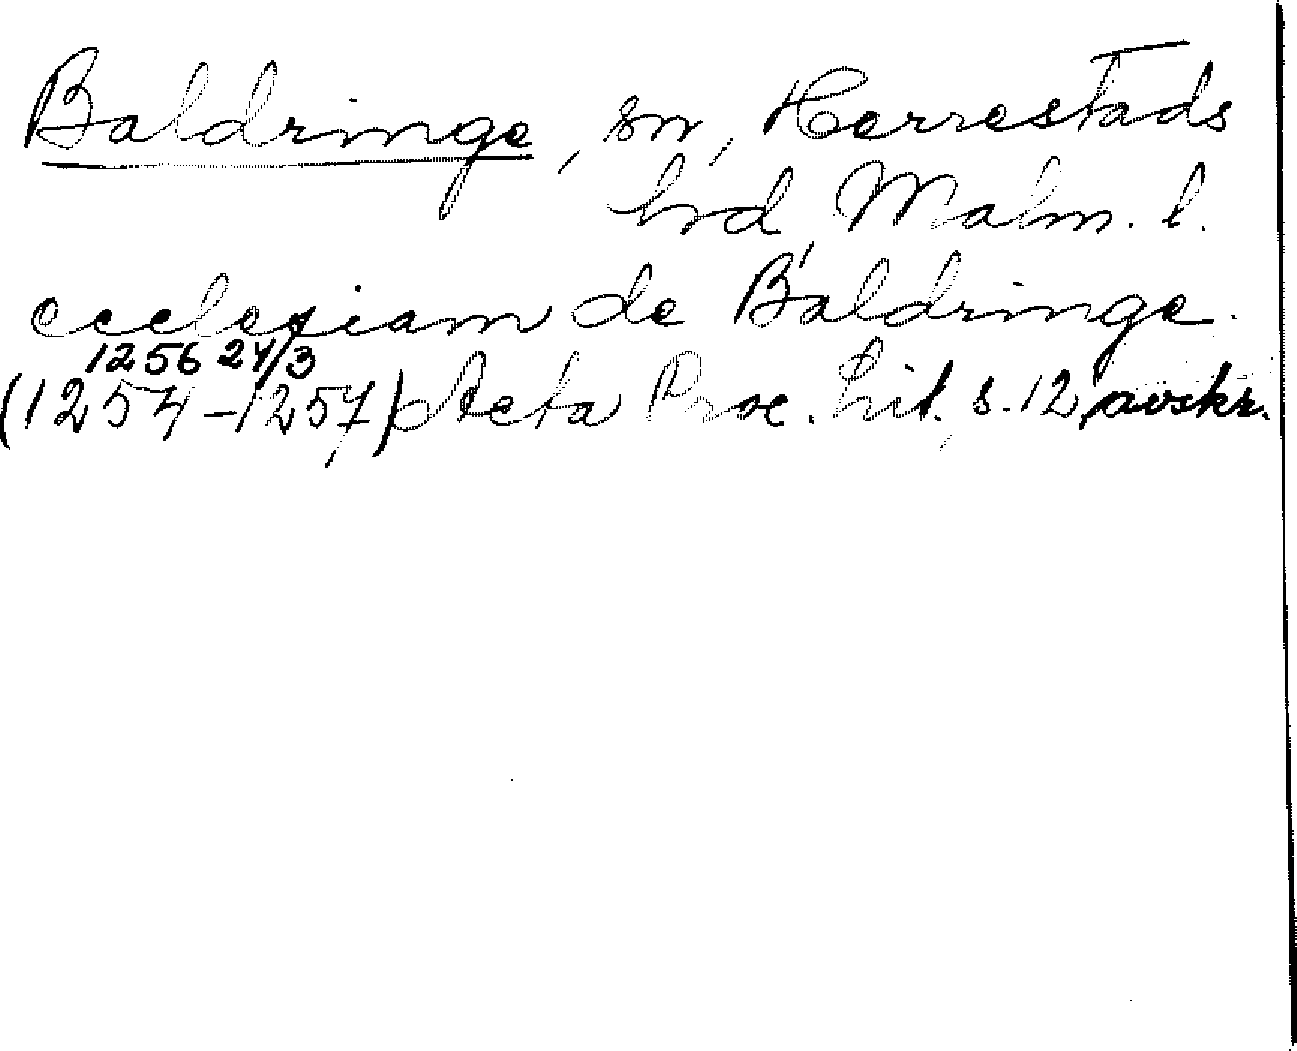 Baldringe, sn, Herrestads
hd, Malm. l.
ecclesiam de Baldringe.
1256 24/3
(1254-1257) Acta Proc. Lit. s. 12, avskr.